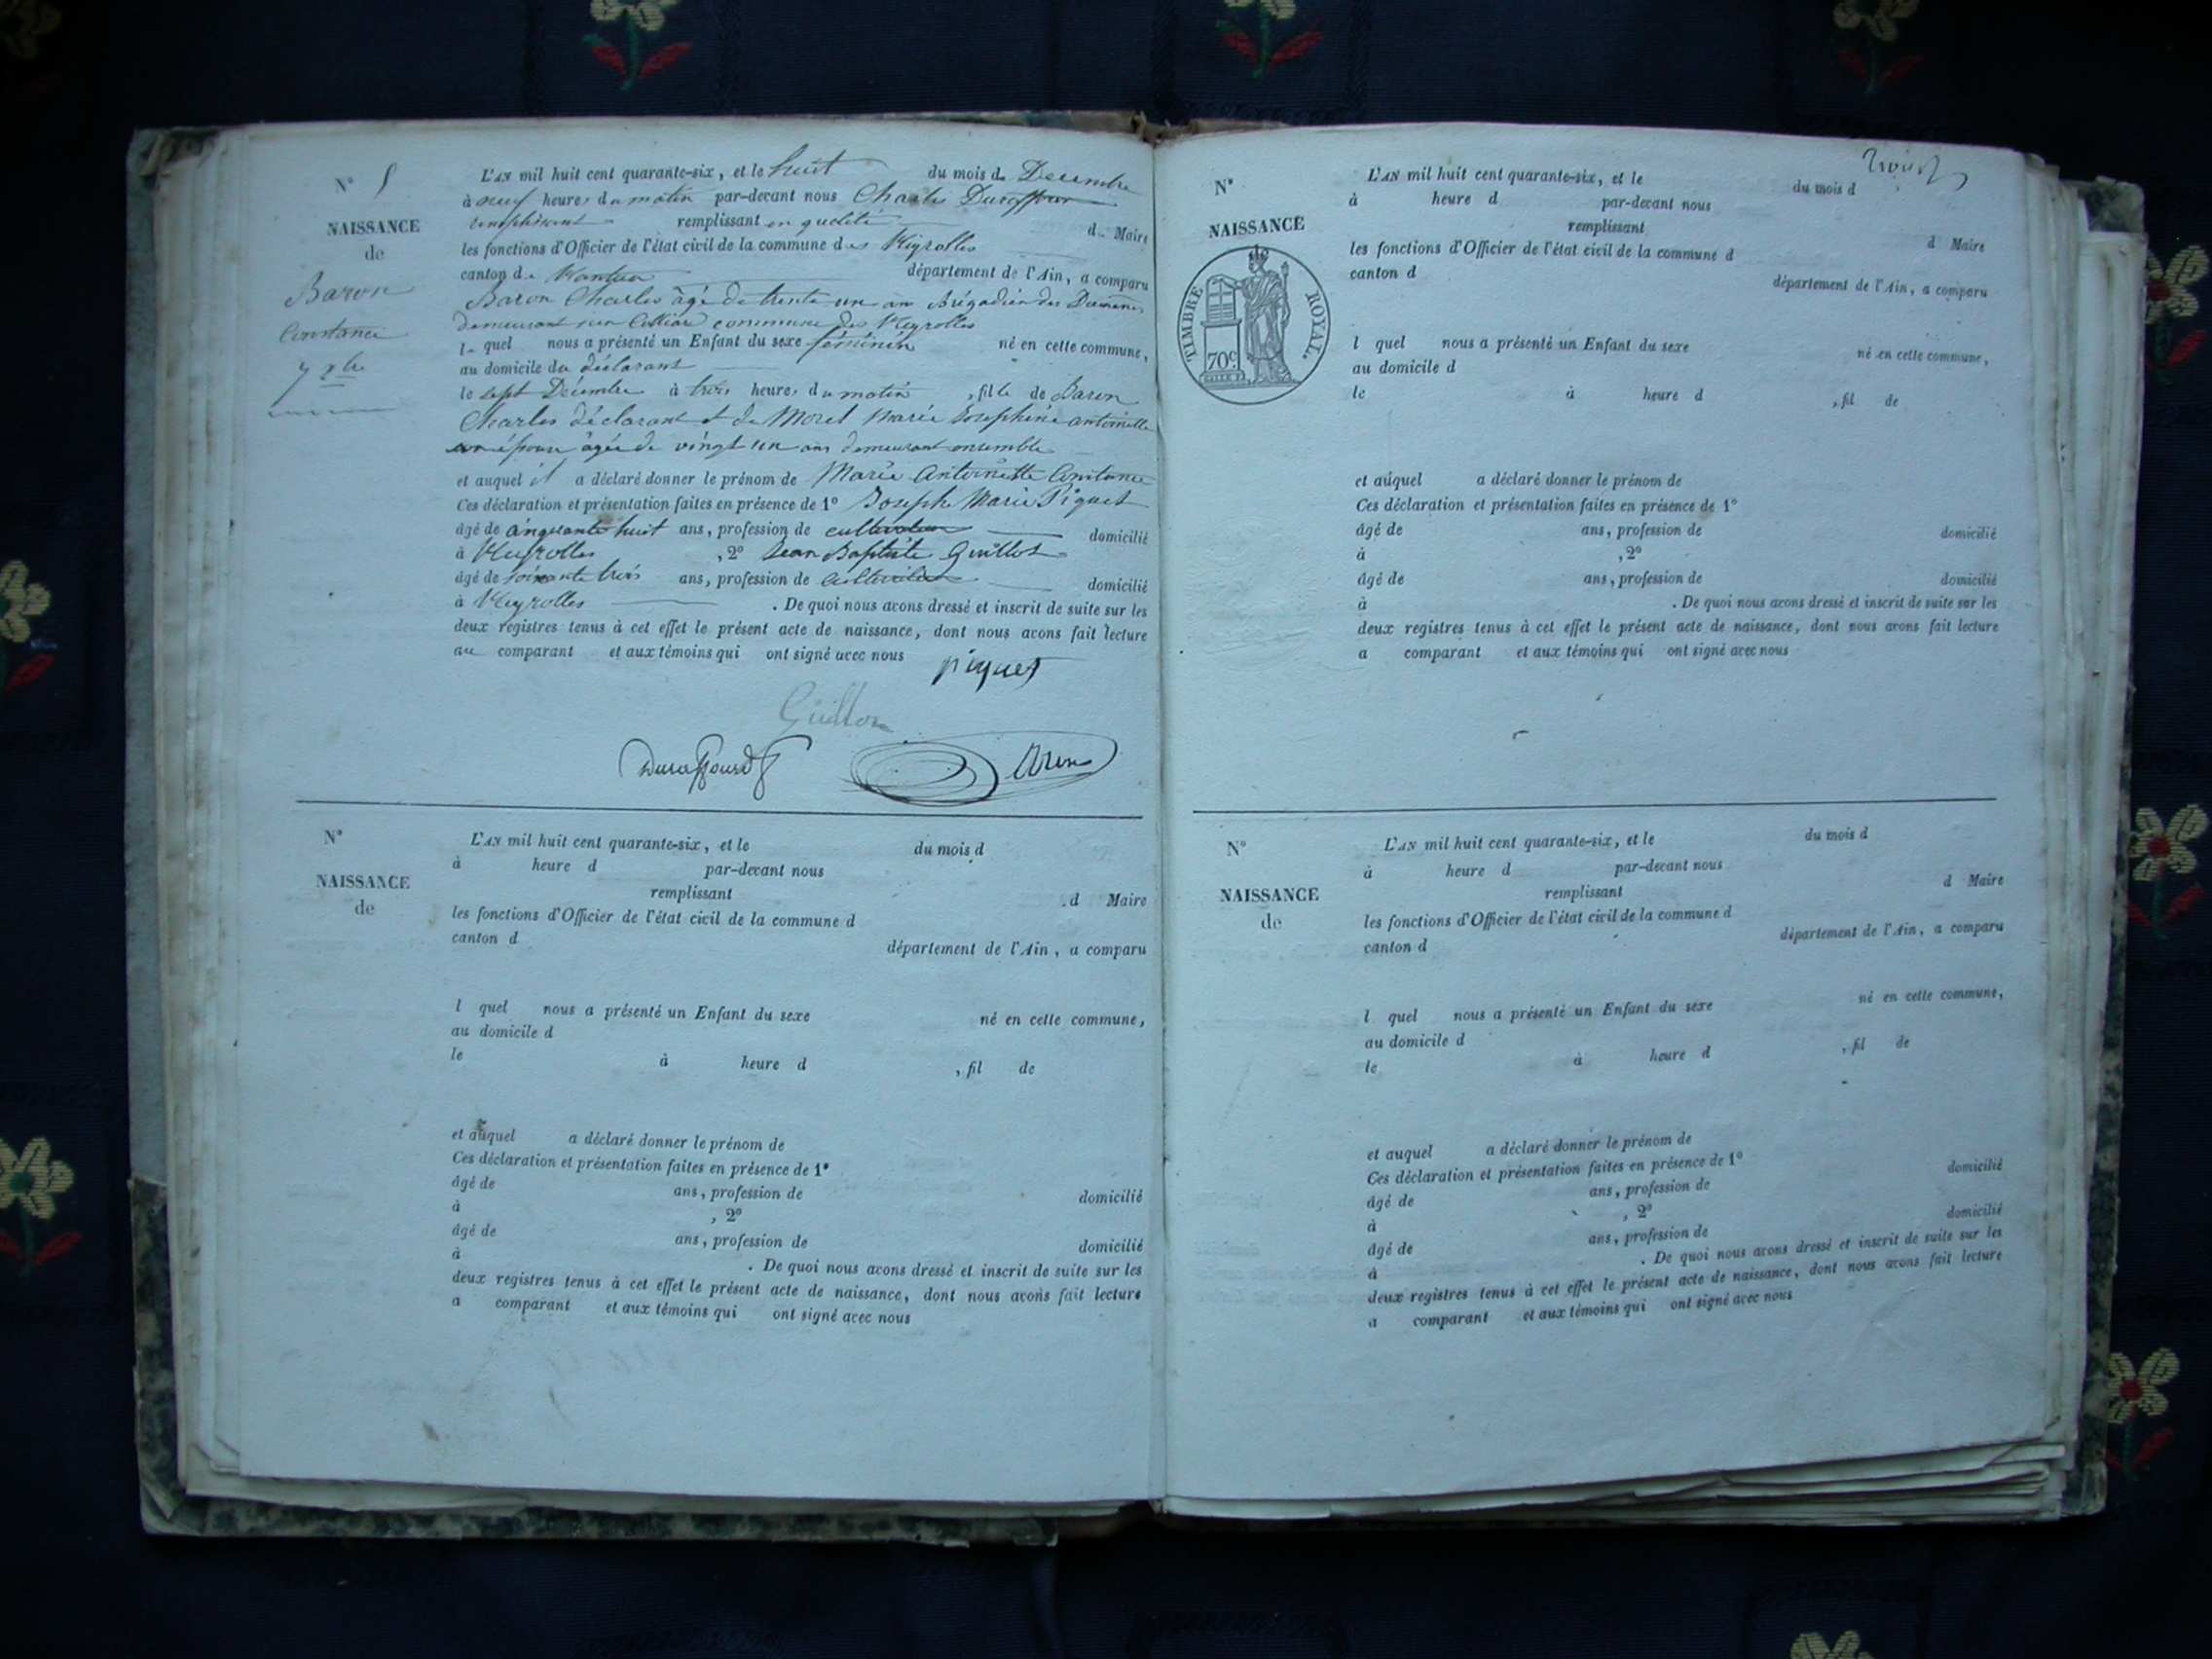 N° 8
NAISSANCE
de
Baron
Constance
7 Xbre
L'AN mil huit cent quarante-six, et le huit du mois de Decembre
à neuf heures du matin par-devant nous Charles Duraffour
remplissant en qualité de Maire
les fonctions d'Officier de l'état civil de la commune des Neyrolles
canton de Nantua département de l'Ain, a comparu
Baron Charles âgé de trente un an Brigadier des Douanes
demeurant commune des Neyrolles
le quel nous a présenté un Enfant du sexe féminin né en cette commune,
au domicile du déclarant
le sept Décembre à trois heures du matin, fille de Baron
Charles déclarant et de Morel Marie Josephine antoinette
son épouse âgée de vingt un ans demeurant ensemble
et auquel il a déclaré donner le prénom de Marie Antoinette Constance
Ces déclaration et présentation faites en présence de 1° Joseph Marie Piquet
âgé de cinquante huit ans, profession de cultivateur domicilié
à Neyrolles, 2° Jean Baptiste Guillot
âgé de soixante trois ans, profession de cultivateur domicilié
à Neyrolles. De quoi nous avons dressé et inscrit de suite sur les
deux registres tenus à cet effet le présent acte de naissance, dont nous avons fait lecture
au comparant et aux témoins qui ont signé avec nous
piquet
Guillot
Duraffourd
Baron
N°
NAISSANCE
de
L'AN mil huit cent quarante-six, et le du mois d
à heure d par-devant nous
remplissant d Maire
les fonctions d'Officier de l'état civil de la commune d
canton d département de l'Ain, a comparu
l quel nous a présenté un Enfant du sexe né en cette commune,
au domicile d
le à heure d , fil de
et auquel a déclaré donner le prénom de
Ces déclaration et présentation faites en présence de 1°
âgé de ans, profession de domicilié
à , 2°
âgé de ans, profession de domicilié
à . De quoi nous avons dressé et inscrit de suite sur les
deux registres tenus à cet effet le présent acte de naissance, dont nous avons fait lecture
a comparant et aux témoins qui ont signé avec nous
N°
NAISSANCE
TIMBRE ROYAL.
70c.
L'AN mil huit cent quarante-six, et le du mois d
à heure d par-devant nous
remplissant d Maire
les fonctions d'Officier de l'état civil de la commune d
canton d département de l'Ain, a comparu
l quel nous a présenté un Enfant du sexe né en cette commune,
au domicile d
le à heure d , fil de
et auquel a déclaré donner le prénom de
Ces déclaration et présentation faites en présence de 1°
âgé de ans, profession de domicilié
à , 2°
âgé de ans, profession de domicilié
à . De quoi nous avons dressé et inscrit de suite sur les
deux registres tenus à cet effet le présent acte de naissance, dont nous avons fait lecture
a comparant et aux témoins qui ont signé avec nous
N°
NAISSANCE
de
L'AN mil huit cent quarante-six, et le du mois d
à heure d par-devant nous
remplissant d Maire
les fonctions d'Officier de l'état civil de la commune d
canton d département de l'Ain, a comparu
l quel nous a présenté un Enfant du sexe né en cette commune,
au domicile d
le à heure d , fil de
et auquel a déclaré donner le prénom de
Ces déclaration et présentation faites en présence de 1°
âgé de ans, profession de domicilié
à , 2°
âgé de ans, profession de domicilié
à . De quoi nous avons dressé et inscrit de suite sur les
deux registres tenus à cet effet le présent acte de naissance, dont nous avons fait lecture
a comparant et aux témoins qui ont signé avec nous